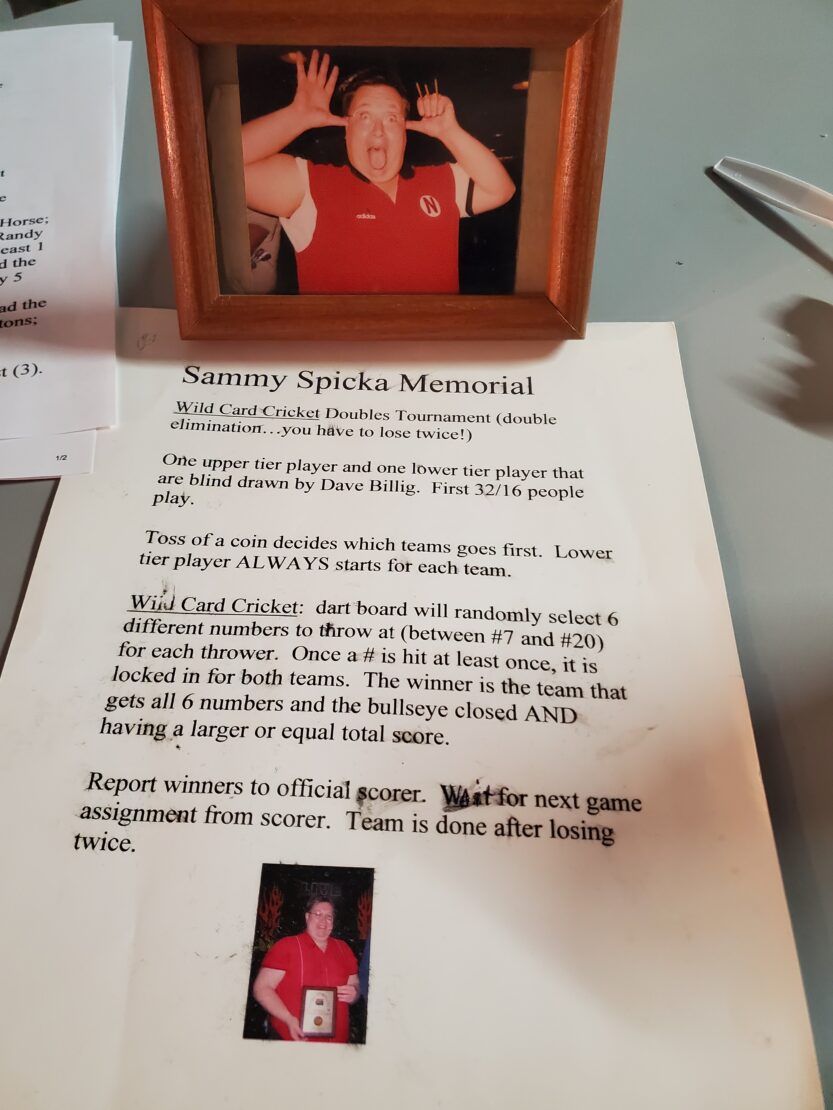 Horse;
Randy
east 1
d the
y 5
ad the
tons;
t (3).
1/2
adidas
N
Sammy Spicka Memorial
Wild Card Cricket Doubles Tournament (double
elimination…you have to lose twice!)
One upper tier player and one lower tier player that
are blind drawn by Dave Billig. First 32/16 people
play.
Toss of a coin decides which teams goes first. Lower
tier player ALWAYS starts for each team.
Wild Card Cricket: dart board will randomly select 6
different numbers to throw at (between #7 and #20)
for each thrower. Once a # is hit at least once, it is
locked in for both teams. The winner is the team that
gets all 6 numbers and the bullseye closed AND
having a larger or equal total score.
Report winners to official scorer. Wait for next game
assignment from scorer. Team is done after losing
twice.
LIVE